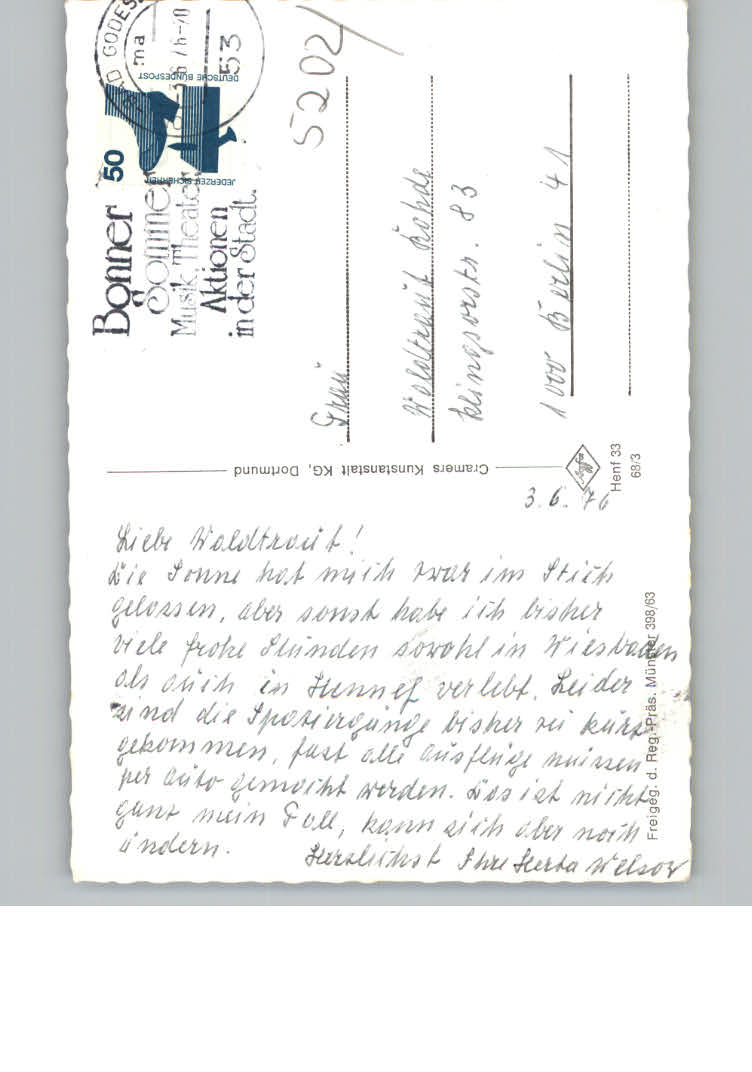 3.6.76
Liebe Waldtraut!
Die Sonne hat mich zwar im Stich
gelassen, aber sonst habe ich bisher
viele frohe Stunden sowohl in Wiesbaden
als auch in Hennef verlebt. Leider
sind die Spaziergänge bisher zu kurz
gekommen, fast alle Ausflüge müssen
per Auto gemacht werden. Das ist nicht
ganz mein Fall, kann sich aber noch
ändern.
Herzlichst Ihre Herta
Cramers Kunstanstalt KG, Dortmund
Henf 33
68/3
Freigeg. d. Reg.-Präs. Münster 398/63
Bonner
Sommer
Musik, Theater
Aktionen
in der Stadt.
50
DEUTSCHE BUNDESPOST
JEDERZEIT SICHERHEIT
BAD GODESB
53
5202
Frau
Waldtraut Rohde
Klingsorstr. 83
1000 Berlin 41